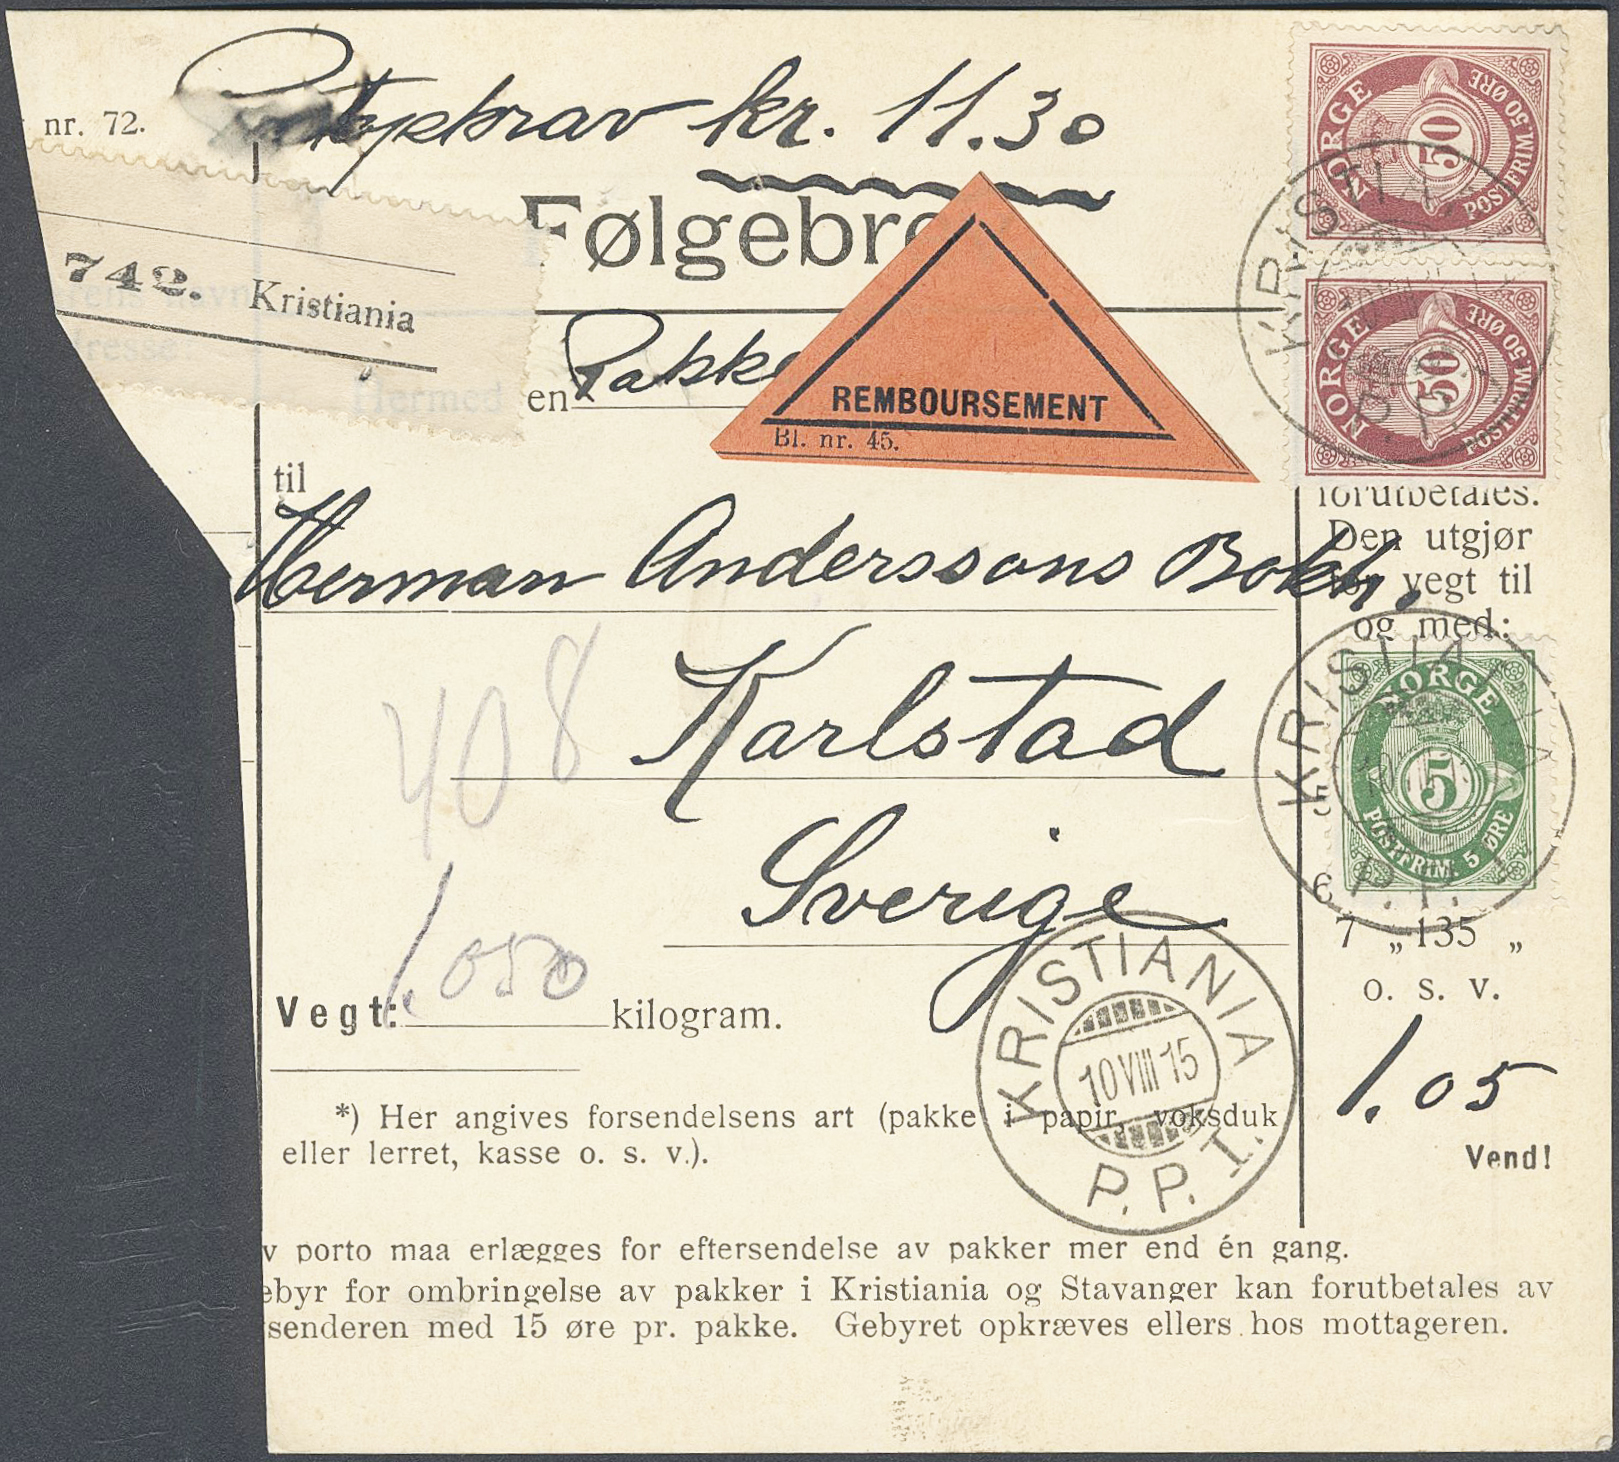 nr. 72.
Postopkrav kr. 11.30
Følgebre
742. Kristiania
Hermed en Pakke
REMBOURSEMENT
Bl. nr. 45.
NORGE 50 POSTFRIM. 50 ØRE
NORGE 50 POSTFRIM. 50 ØRE
KRISTIANIA P.P.
til
Herman Anderssons Bokh.
Karlstad
Sverige
forutbetales.
Den utgjør
vegt til
og med:
NORGE 5 POSTFRIM. 5 ØRE
KRISTIANIA P.P.
5
6
7 „ 135 „
o. s. v.
1.05
Vend!
408
1.050
Vegt: kilogram.
KRISTIANIA
10 VIII 15
P.P.I.
*) Her angives forsendelsens art (pakke i papir, voksduk
eller lerret, kasse o. s. v.).
v porto maa erlægges for eftersendelse av pakker mer end én gang.
ebyr for ombringelse av pakker i Kristiania og Stavanger kan forutbetales av
senderen med 15 øre pr. pakke. Gebyret opkræves ellers hos mottageren.